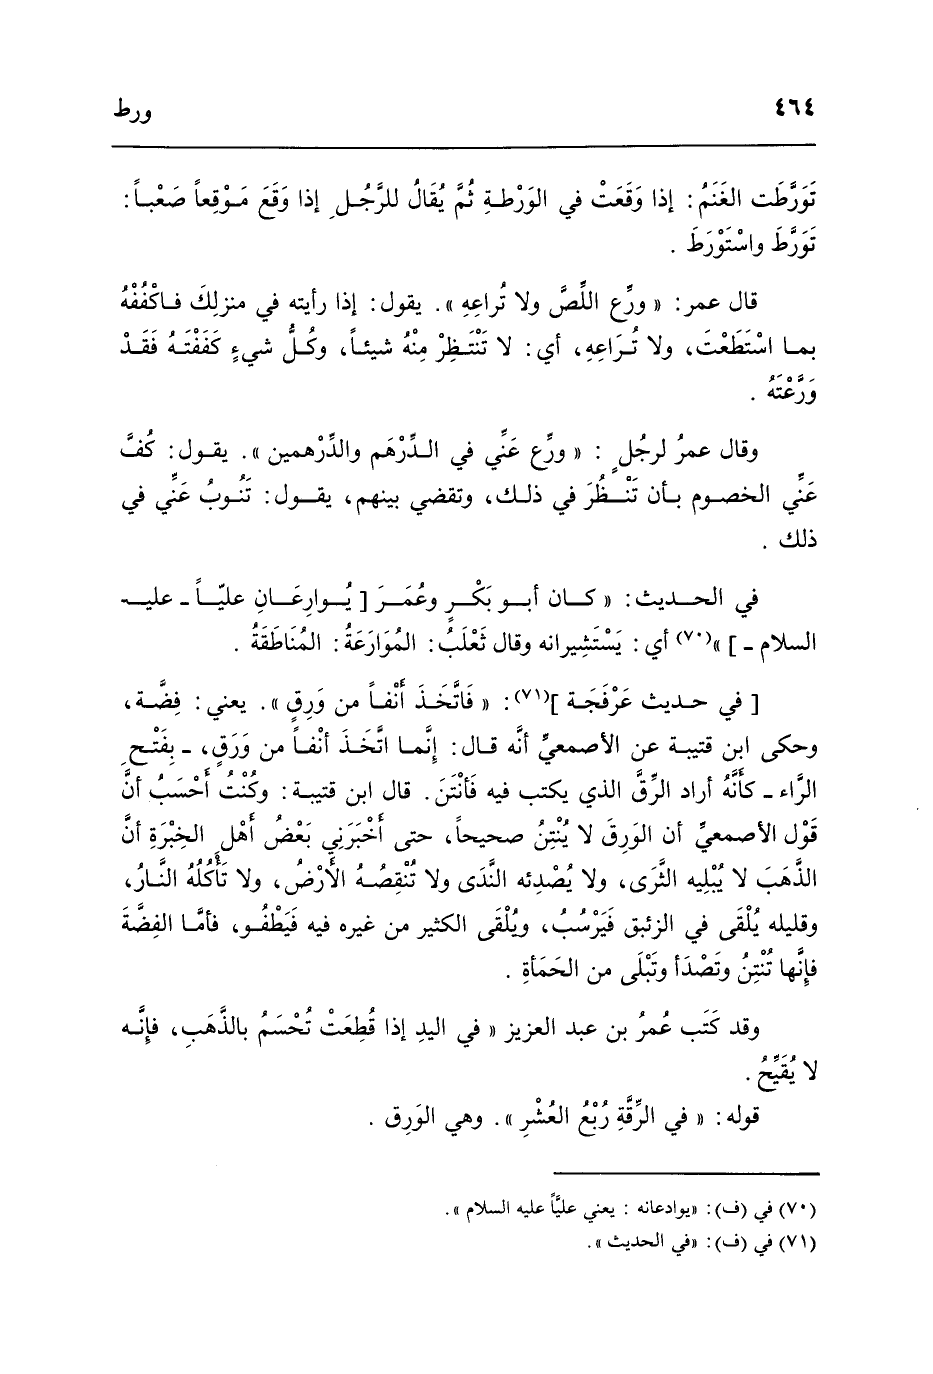 ٤٦٤
ورط
تَوَرَّطَت الغَنَمُ: إذا وَقَعَتْ في الوَرْطـةِ ثُمَّ يُقَالُ للرَّجُـلِ إذا وَقَعَ مَـوْقِعاً صَعْبـاً:
تَوَرَّطَ واسْتَوْرَطَ .
قال عمر: « ورِّع اللِّصَّ ولا تُراعِهِ ». يقول: إذا رأيته في منزلِكَ فـاكْفُفْهُ
بمـا اسْتَطَعْتَ، ولا تُـرَاعِهِ، أي: لا تَنْتَـظِرْ مِنْهُ شيئـاً، وكُـلُّ شيءٍ كَفَفْتَـهُ فَقَـدْ
وَرَّعْتَهُ .
وقال عمرُ لرجُلٍ : « ورِّع عَنِّي في الـدِّرْهَم والدِّرْهمين ». يقـول: كُفَّ
عَنِّي الخصـوم بـأن تَنْـظُرَ في ذلـك، وتقضي بينهم، يقـول: تَنُـوبُ عَنِّي في
ذلك .
في الحـديث: « كـان أبـو بَكْـرٍ وعُمَـرَ [ يُـوارِعَـانِ عليّـاً ـ عليـه
السلام ـ ] »(٧٠) أي: يَسْتَشِيرانه وقال ثَعْلَبُ: المُوَارَعَةُ: المُنَاطَقَةُ .
[ في حـديث عَرْفَجَـة ](٧١): « فَاتَّخَـذَ أَنْفـاً من وَرِقٍ ». يعني: فِضَّـة،
وحكى ابن قتيبـة عن الأصمعيِّ أنَّه قـال: إنَّمـا اتَّخَـذَ أنْفـاً من وَرَقٍ، ـ بِفَتْـحِ
الرَّاء ـ كأَنَّهُ أراد الرِّقَّ الذي يكتب فيه فَأنْتَنَ. قال ابن قتيبـة: وكُنْتُ أَحْسَبُ أنَّ
قَوْل الأصمعيِّ أن الوَرِقَ لا يُنْتِنُ صحيحاً، حتى أَخْبَرَنِي بَعْضُ أَهْلِ الخِبْرَةِ أنَّ
الذَّهَبَ لا يُبْلِيه الثَّرَى، ولا يُصْدِئه النَّدَى ولا تُنْقِصُـهُ الأَرْضُ، ولا تَأْكُلُهُ النَّـارُ،
وقليله يُلْقَى في الزئبق فَيَرْسُبُ، ويُلْقَى الكثير من غيره فيه فَيَطْفُـو، فأمَّـا الفِضَّةَ
فإنَّها تُنْتِنُ وتَصْدَأ وتَبْلَى من الحَمَأةِ .
وقد كَتَب عُمرُ بن عبد العزيز « في اليدِ إذا قُطِعَتْ تُحْسَمُ بالذَّهَبِ، فإنَّـه
لا يُقَيِّحُ .
قوله: « في الرِّقَّةِ رُبْعُ العُشْرِ ». وهي الوَرِق .
(٧٠) في (ف): «يوادعانه : يعني عليًّا عليه السلام ».
(٧١) في (ف): «في الحديث ».